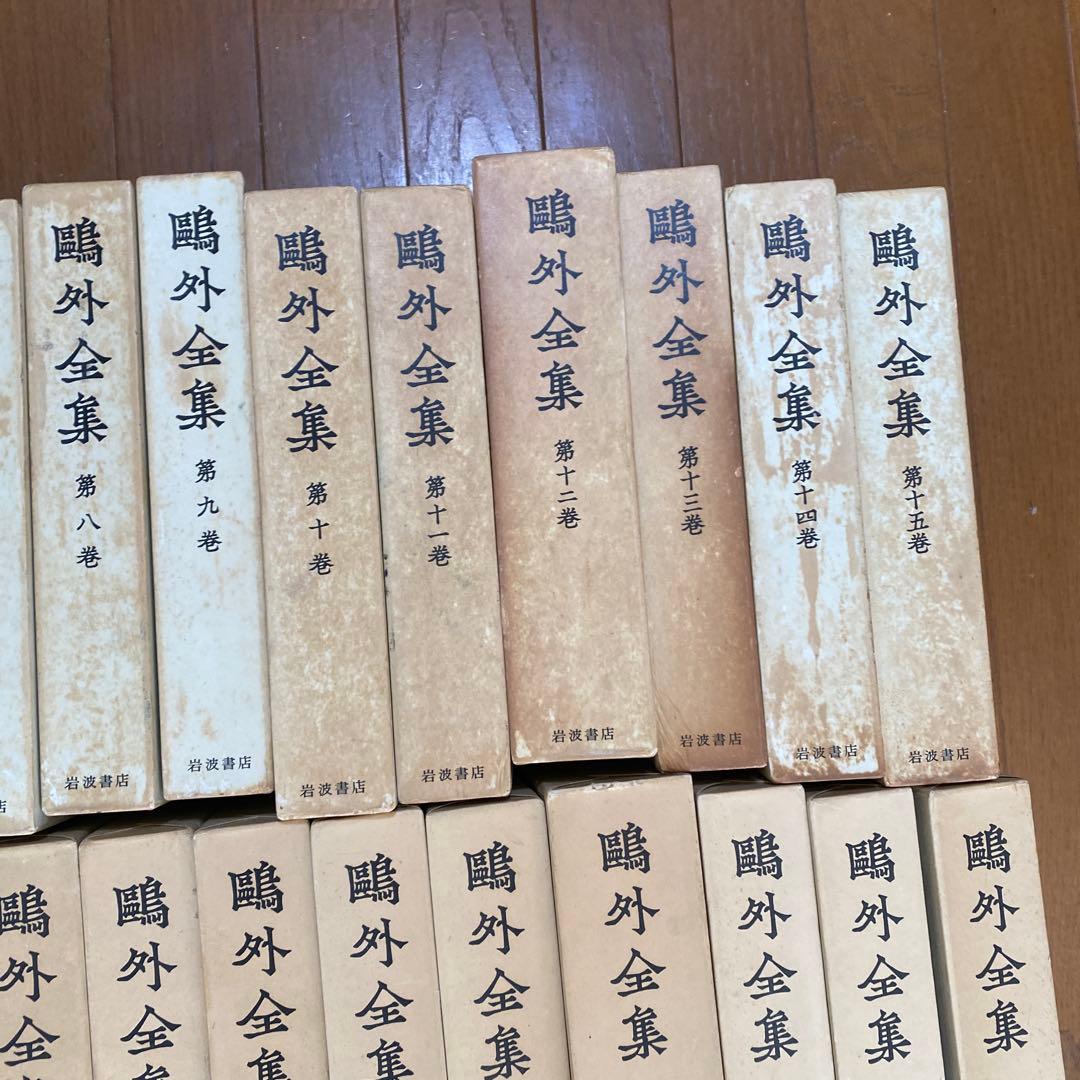 店
鷗外全集
第八巻
岩波書店
鷗外全集
第九巻
岩波書店
鷗外全集
第十巻
岩波書店
鷗外全集
第十一巻
岩波書店
鷗外全集
第十二巻
岩波書店
鷗外全集
第十三巻
岩波書店
鷗外全集
第十四巻
岩波書店
鷗外全集
第十五巻
岩波書店
鷗外全
鷗外全集
鷗外全集
鷗外全集
鷗外全集
鷗外全集
鷗外全集
鷗外全集
鷗外全集